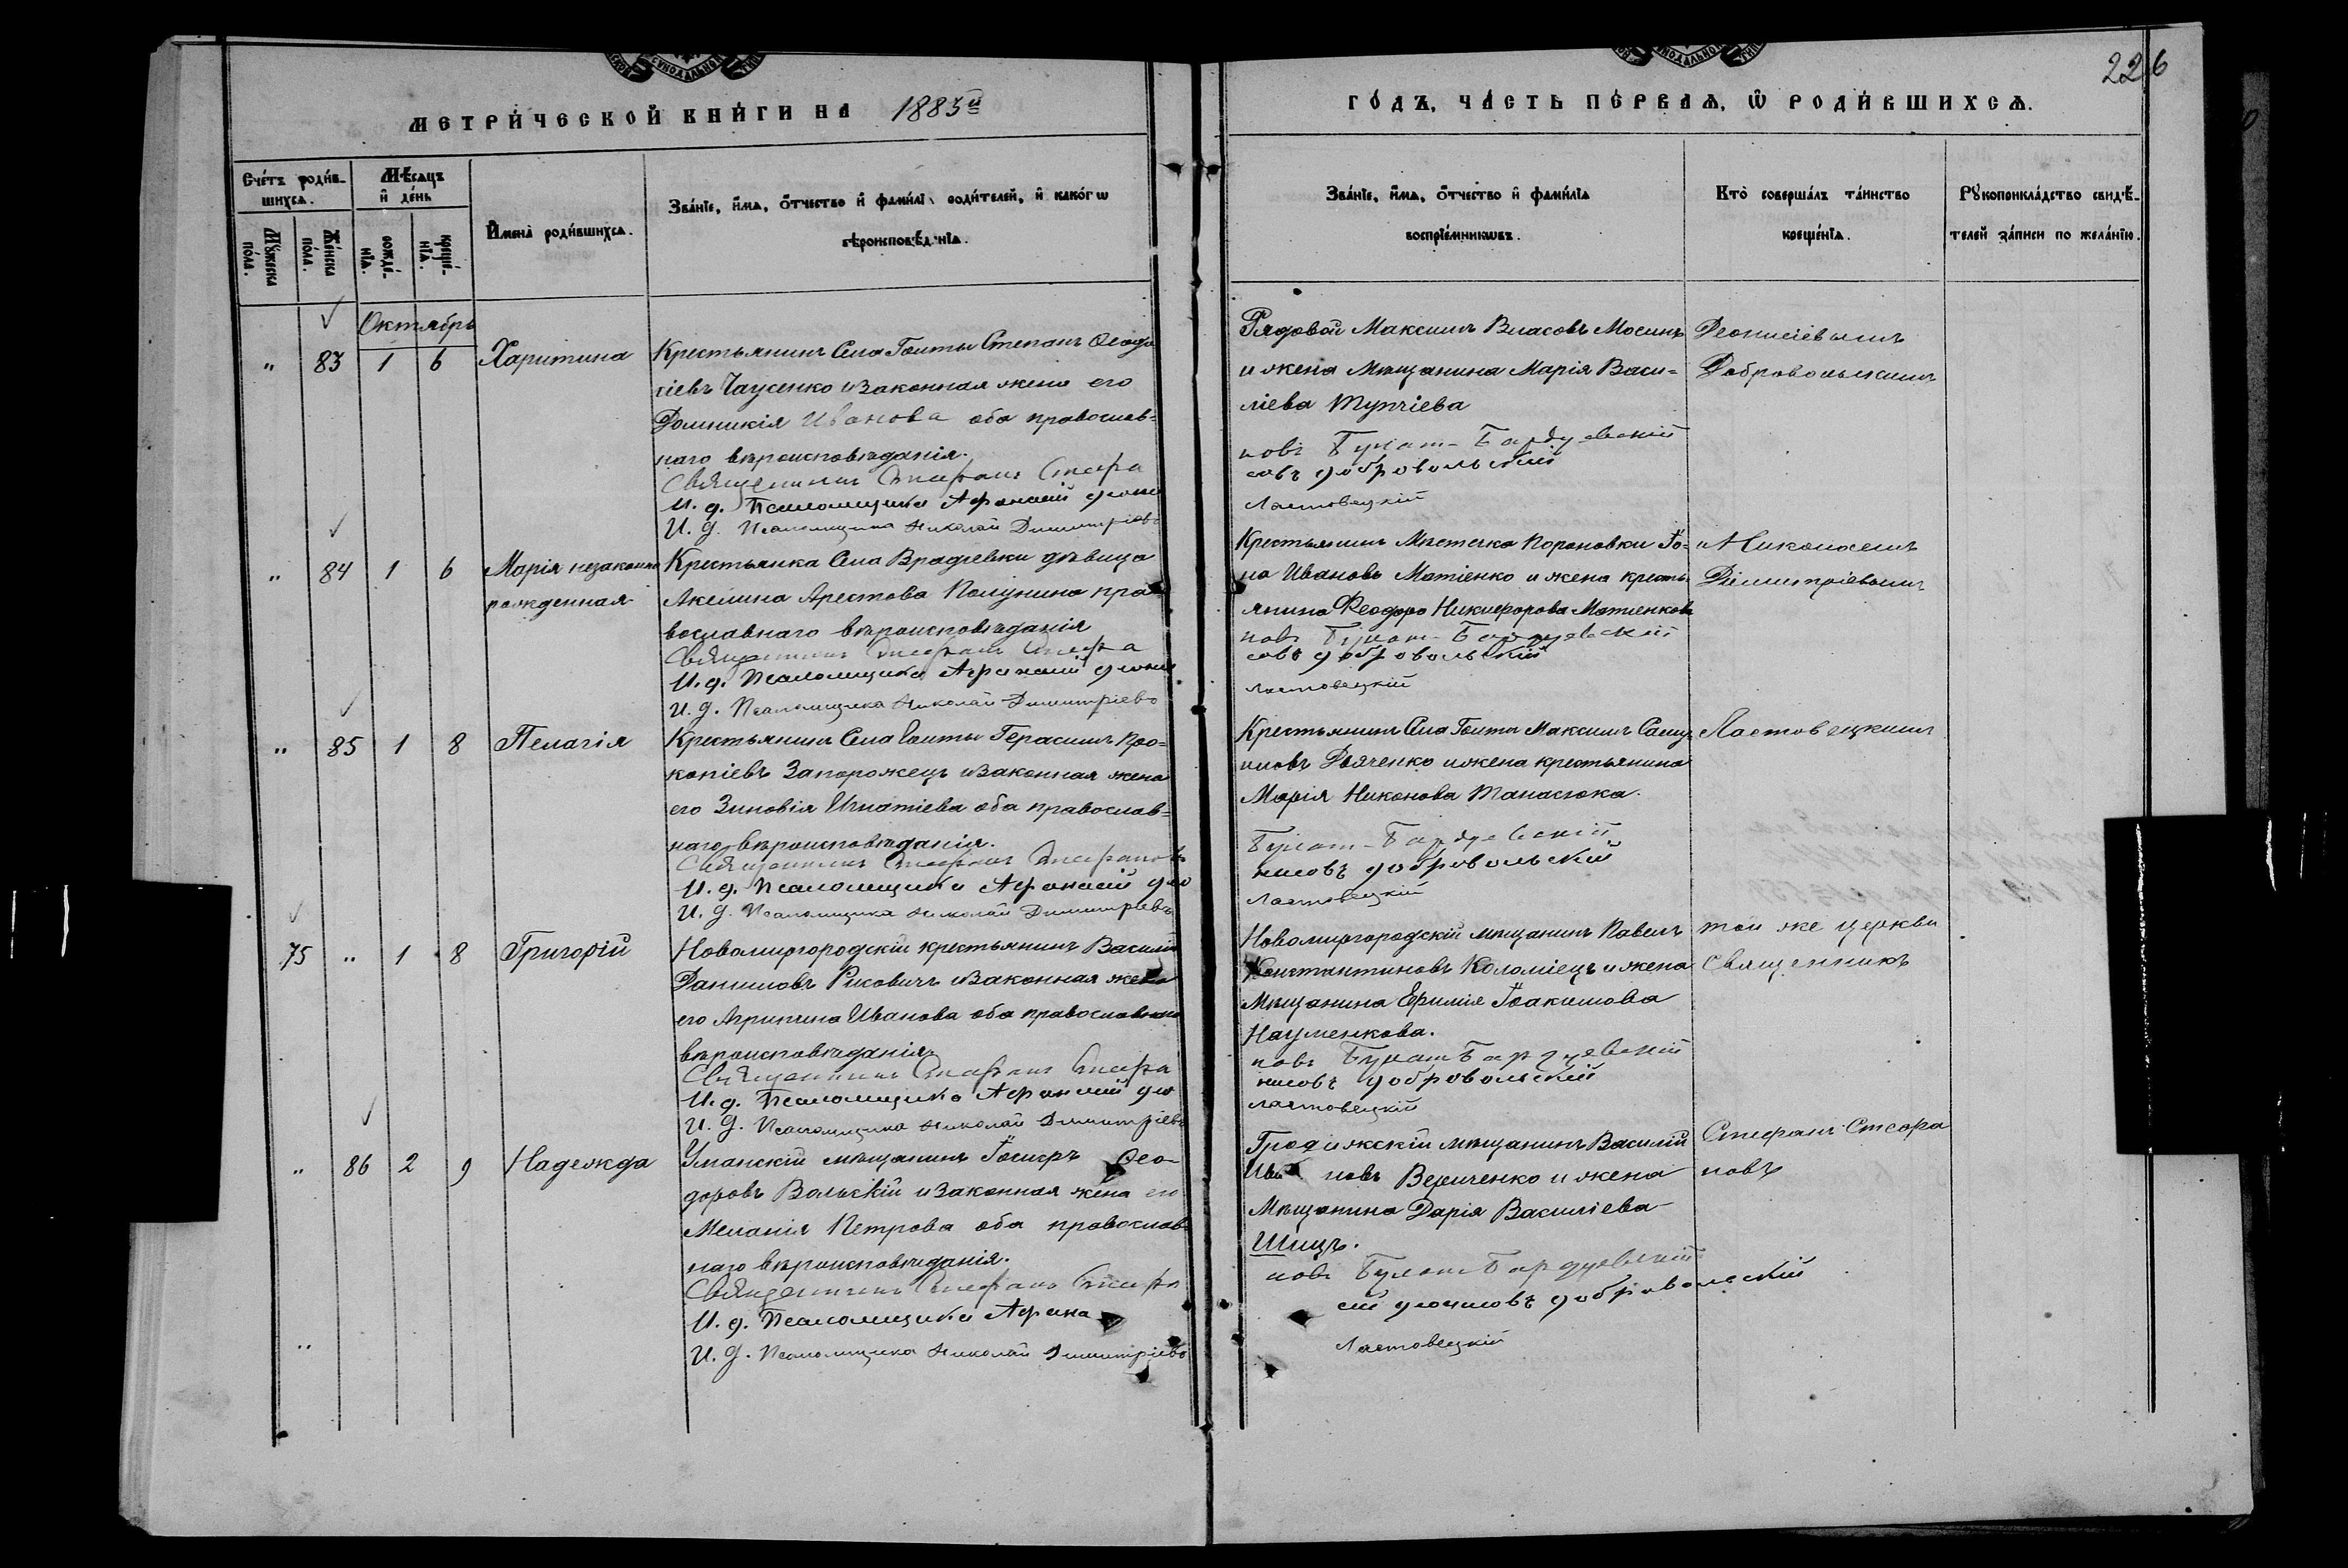 226
МЕТРИ́ЧЕСКОЙ КНИ́ГИ НА 1885й
ГО́ДЪ, ЧА́СТЬ ПЕ́РВАѦ, Ѡ҆ РОДИ́ВШИХСѦ.
Сче́тъ роди́в-
шихсѧ.
Мѣ́сѧцъ
и҆ де́нь
Мꙋ́жеска
по́ла.
Же́нска
по́ла.
рожде́-
нїѧ.
креще́-
нїѧ.
И҆мена̀ роди́вшихсѧ.
Зва́нїе, и҆́мѧ, ѻ҆́тчество и҆ фамилїѧ родителей, и҆ како́гѡ
вѣроисповѣданїѧ.
Зва́нїе, и҆́мѧ, ѻ҆́тчество и҆ фами́лїѧ
воспрїе́мникѡвъ.
Кто̀ соверша́лъ та́инство
креще́нїѧ.
Рꙋкоприкла́дство свидѣ́-
телей за́писи по жела́нїю.
Октябрь
" 83 1 6 Харитина
Крестьянинъ Села Гоиты Степанъ Ѳеодо
сіевъ Чаусенко и законная жена его
Домникія Иванова оба православ-
наго вѣроисповѣданія.
Священникъ Стефанъ Стефа
И. д. Псаломщика Афанасій діони
И. д. Псаломщика Николай Димитріевъ
Рядовой Максимъ Власовъ Мосинъ
и жена Мѣщанина Марія Васи-
ліева Тупчіева
новъ Булат-Бардуевскій
совъ добровольскій
Ластовецкій
Деонисіевымъ
Добровольскимъ
" 84 1 6 Марія незаконно
рожденная
Крестьянка Села Врадіевки дѣвица
Акелина Арестова Полунина пра-
вославнаго вѣроисповѣданія
Священникъ Стефанъ Стефа
И. д. Псаломщика Афанасій діони
И. д. Псаломщика Николай Димитріевъ
Крестьянинъ Мѣстечка Іо-
на Ивановъ Матіенко и жена кресть-
янина Ѳеодора Никифорова Матіенкова
новъ Булат-Бардуевскій
совъ добровольскій
Ластовецкій
и Николаемъ
Димитріевымъ
" 85 1 8 Пелагія
Крестьянинъ Села Гоиты Герасимъ Про-
копіевъ Запорожецъ и законная жена
его Зиновія Игнатіева оба православ-
наго вѣроисповѣданія.
Священникъ Стефанъ Стефановъ
И. д. Псаломщика Афанасій діо
И. д. Псаломщика Николай Димитріевъ
Крестьянинъ Села Гоиты Максимъ Саму-
иловъ Дяченко и жена крестьянина
Марія Никонова Танасюка.
Булат-Бардуевскій
нисовъ добровольскій
Ластовецкій
Ластовецкимъ
75 " 1 8 Григорій
Новомиргородскій крестьянинъ Василій
Даниловъ Рисовичъ и законная жена
его Агрипина Иванова оба православнаго
вѣроисповѣданія.
Священникъ Стефанъ Стефа
И. д. Псаломщика Афанасій діо
И. д. Псаломщика Николай Димитріевъ
Новомиргородскій мѣщанинъ Павелъ
Константиновъ Коломіецъ и жена
Мѣщанина Ефимія Іоакимова
Науменкова.
новъ Булат Бардуевскій
нисовъ добровольскій
Ластовецкій
той же церкви
Священникъ
" 86 2 9 Надежда
Уманскій мѣщанинъ Іосифъ Ѳео-
доровъ Вольскій и законная жена его
Меланія Петрова оба православ-
наго вѣроисповѣданія.
Священникъ Стефанъ Стефа
И. д. Псаломщика Афана
И. д. Псаломщика Николай Димитріевъ
мѣщанинъ Василій
Ивановъ и жена
Мѣщанина Дарія Василіева
Шицъ.
новъ Булат Бардуевскій
сій діонисовъ добровольскій
Ластовецкій
Стефанъ Стефа
новъ
"